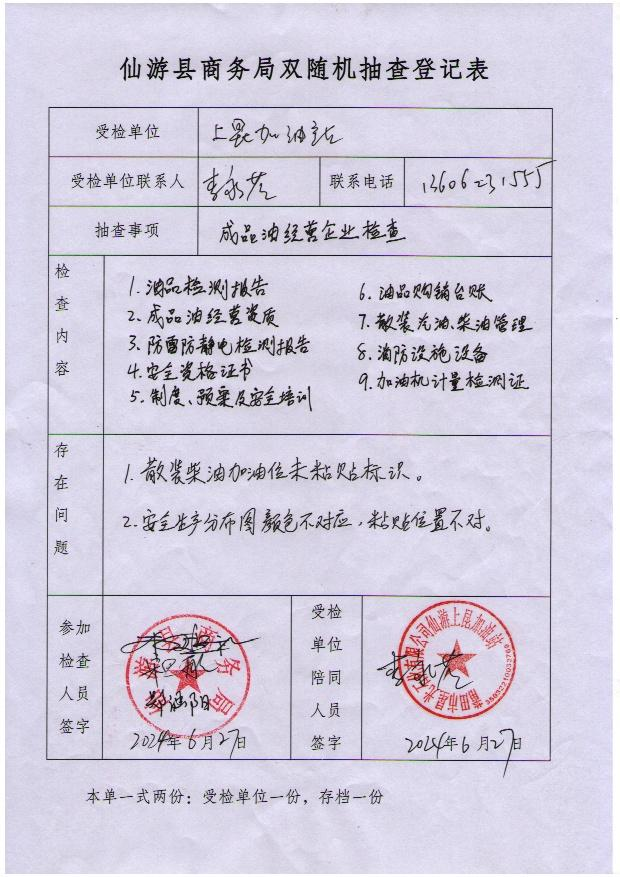 仙游县商务局双随机抽查登记表
受检单位 上昆加油站
受检单位联系人 联系电话
抽查事项 成品油经营企业检查
检查内容
1. 油品检测报告
2. 成品油经营资质
3. 防雷防静电检测报告
4. 安全资格证书
5. 制度、预案及安全培训
6. 油品购销台账
7. 散装汽油、柴油管理
8. 消防设施设备
9. 加油机计量检测证
存在问题
1. 散装柴油加油位未粘贴标识。
2. 安全生产分布图颜色不对应，粘贴位置不对。
参加检查人员签字
仙游县商务局
2024年6月27日
受检单位陪同人员签字
仙游上昆加油站
2024年6月27日
本单一式两份：受检单位一份，存档一份